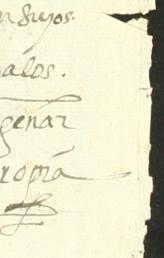 suyos.
alos.
genar
ropia